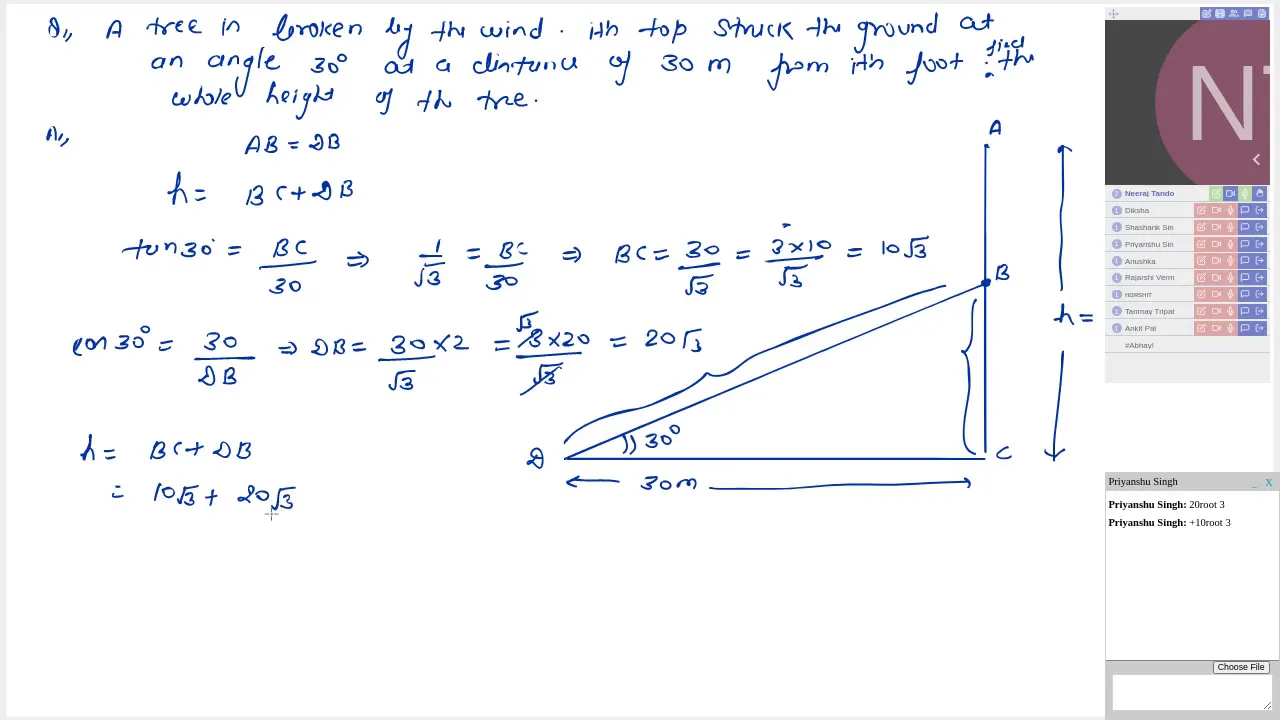 Q,, A tree in broken by the wind. ith top struck the ground at
an angle 30° at a distance of 30 m from ith foot. find the
whole height of the tree.
A,,
AB = DB
h = BC + DB
tan 30° = BC/30 ⇒ 1/√3 = BC/30 ⇒ BC = 30/√3 = 3×10/√3 = 10√3
cos 30° = 30/DB ⇒ DB = 30×2/√3 = √3 3×20/√3 = 20√3
h = BC + DB
= 10√3 + 20√3
A
B
h =
D
30°
C
30m
NT
Neeraj Tando
Diksha
Shashank Sin
Priyanshu Sin
Anushka
Rajarshi Verm
HORSHIT
Tanmay Tripat
Ankit Pal
#Abhay!
Priyanshu Singh _ X
Priyanshu Singh: 20root 3
Priyanshu Singh: +10root 3
Choose File